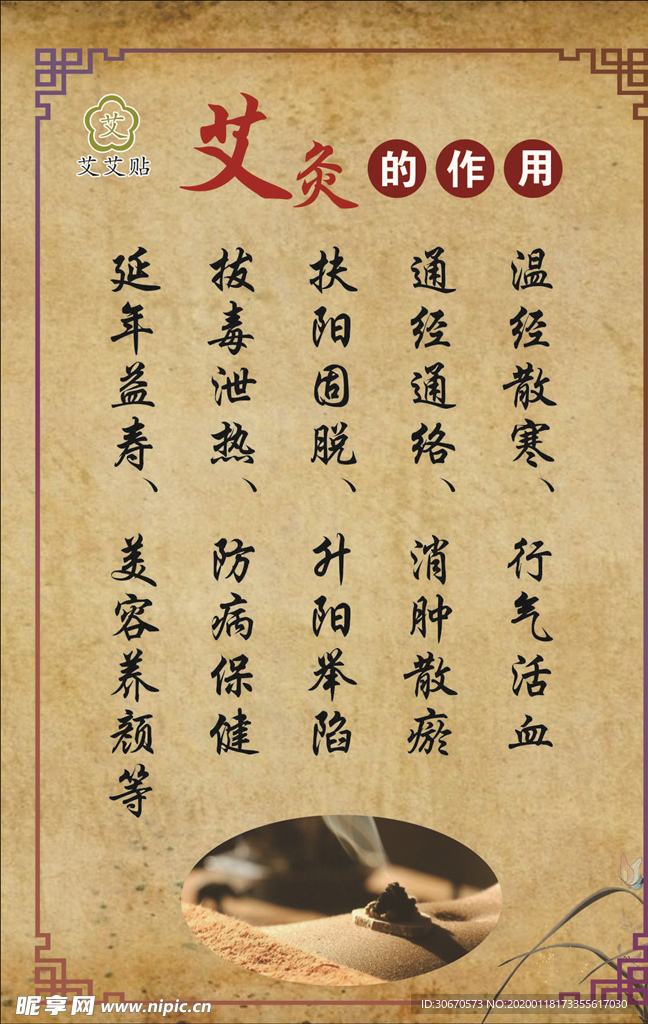 艾
艾艾贴
艾灸的作用
温经散寒、行气活血
通经通络、消肿散瘀
扶阳固脱、升阳举陷
拔毒泄热、防病保健
延年益寿、美容养颜等
昵享网 www.nipic.cn
ID:30670573 NO:20200118173355617030